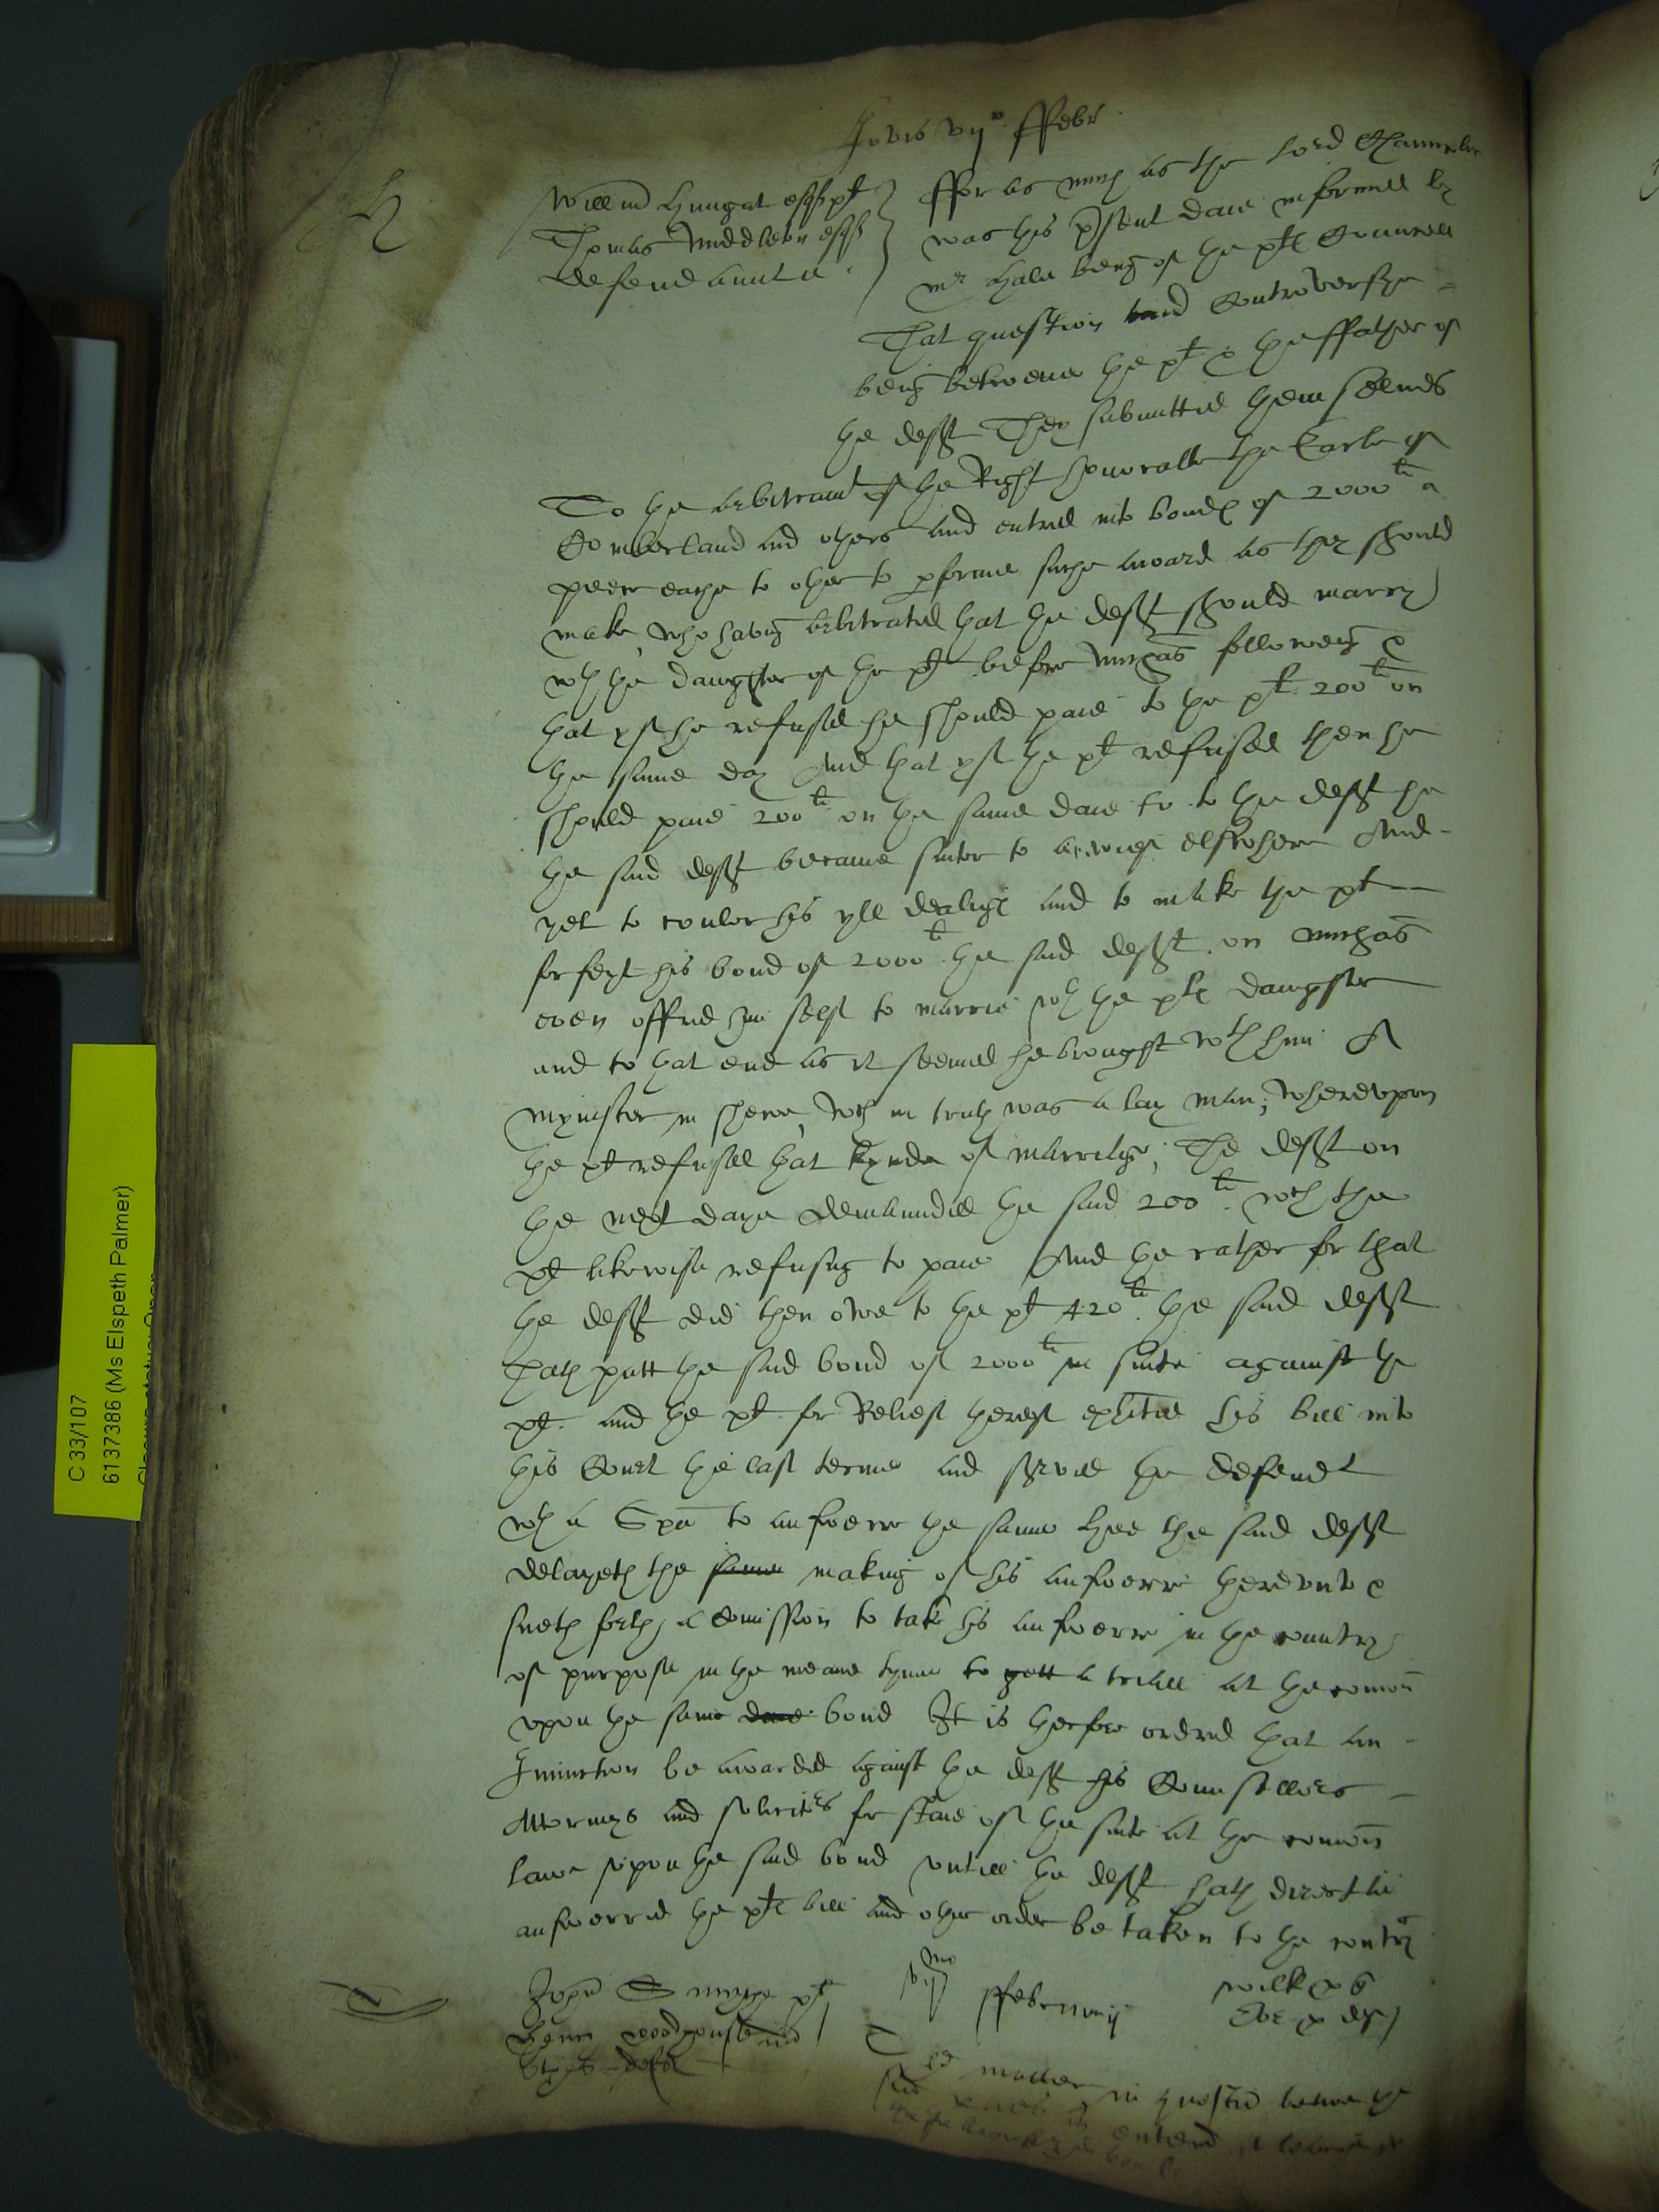 Jovis vijo ffebr
H
Willm Hungat esqr plt
Thomas Middleton esqr
defendaunte
ffor as much as the Lord Chauncelor
was this psent daie informed by
mr Hale being of the plts Councell
That question and Controversye
being betweene the plt & the ffather of
the deft They submitted themselves
To the arbitramt of the Right honorable the Earle of
Comberland and others and entred into bondes of 2000li a
peece eache to other to pforme suche award as they should
make, who having arbitrated that the deft should marry
wth the daughter of the plt before Michas followeng &
that yf he refused he should paie to the plt 200li on
the same day And that yf the plt refused then he
should paie 200li on the same daie to to the deft he
the said deft became sutor to elswhere And
yet to couler his yll dealinge and to make the plt
forfeyt his bond of 2000li the said deft on Michas
even offred him self to marrie wth the plts daughter
and to that end as it seemed he brought wth him A
mynister in shewe, wch in truth was a lay man; Wherevpon
the plt refused that kynde of marriage, The deft on
the next daye demaunded the said 200li wch the
plt likewise refusing to paie And the rather for that
the deft did then owe to the plt 420li the said deft
Hath putt the said bond of 2000li in suite against the
plt. and the plt for Relief therof exhited his bill into
this Court the last terme and served the defendt
wth a Spa to answere the same yet the said deft
delayeth the same making of his answere therevnto &
sueth forth a Comission to take his answere in the country
of purpose in the meane tyme to gett a triall at the comon
vpon the same bond It is therfore ordred that an
Iniunction be awarded against the deft his Counsellors
Attorneys and soliciters for staie of the suite at the comon
lawe vpon the said bond vntill the deft hath directlie
answerred the plts bill and other order be taken to the contry
John plt
Henry Woodhouse and
deftes
vijmo ffebruarij
matter in question betwene the
C 33/107
6137386 (Ms Elspeth Palmer)